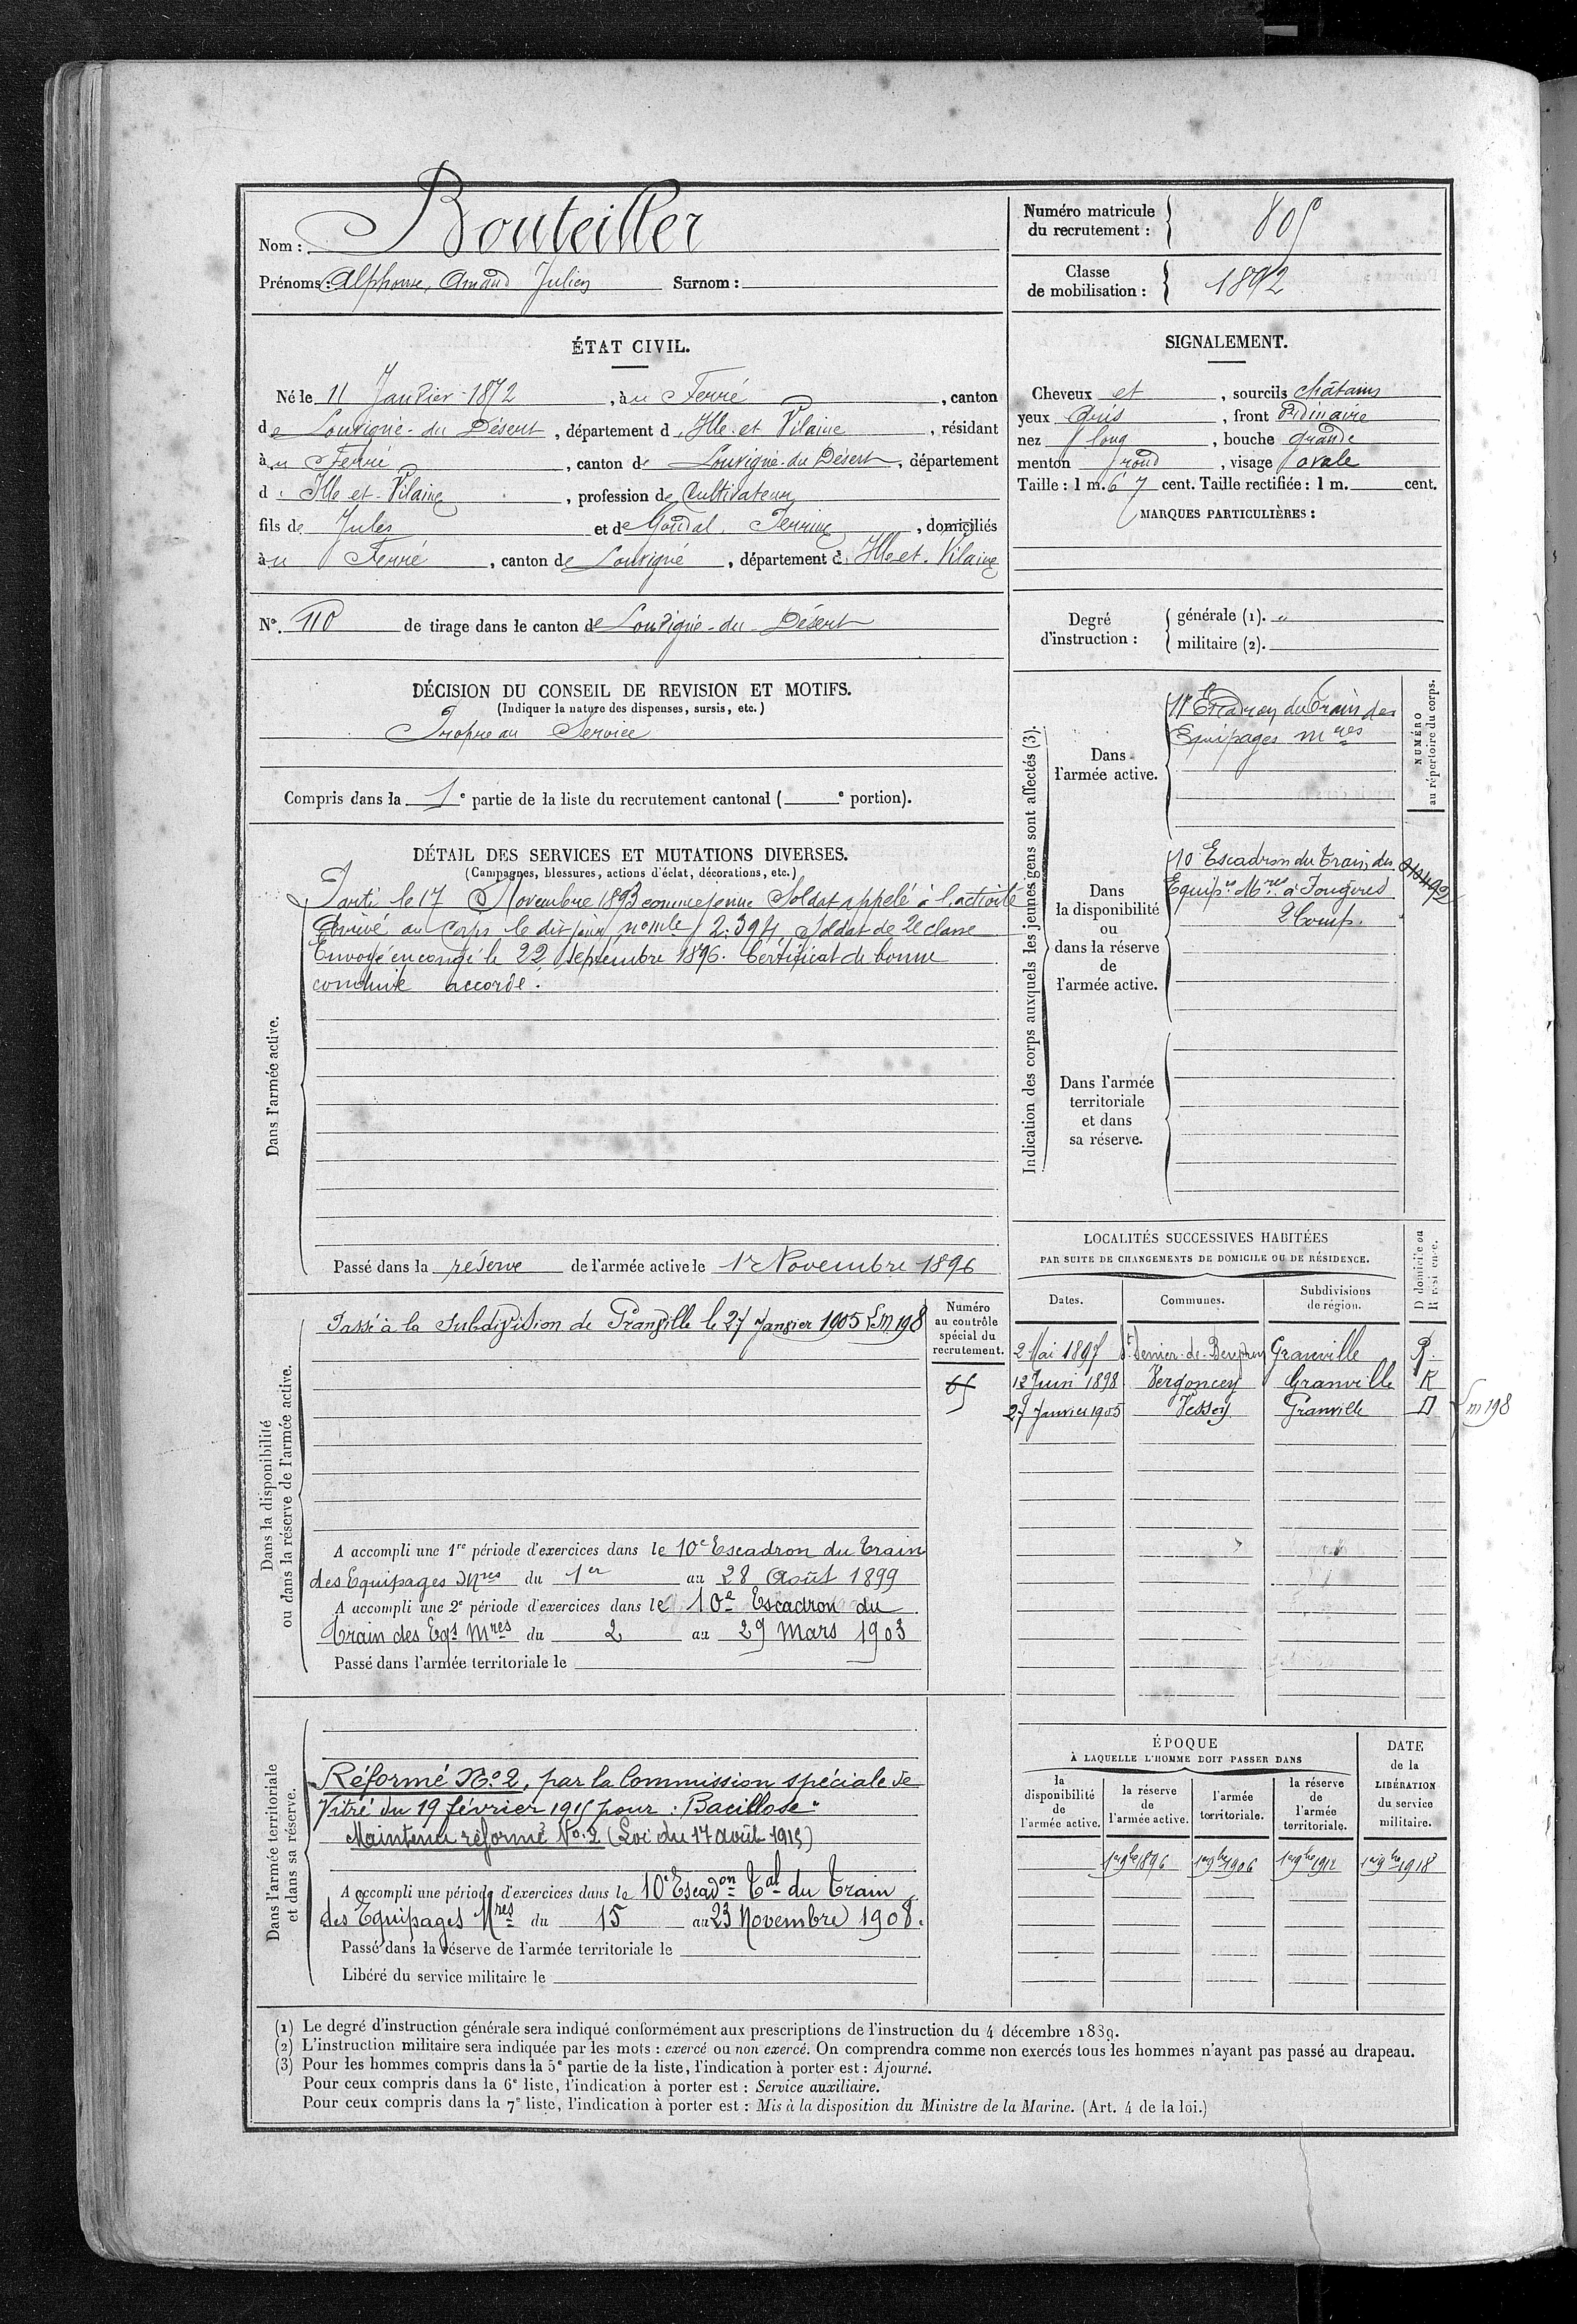 Nom : Bouteiller
Prénoms : Alphonse, Amand Julien Surnom :
Numéro matricule du recrutement : 805
Classe de mobilisation : 1892
ÉTAT CIVIL.
Né le 11 Janvier 1872, à u Ferré, canton
de Louvigné-du Désert, département d' Ille et Vilaine, résidant
à u Ferré, canton de Louvigné-du Désert, département
d' Ille et Vilaine, profession de Cultivateur
fils de Jules et de Goudal, Perrine, domiciliés
à u Ferré, canton de Louvigné, département d' Ille et Vilaine
N° 110 de tirage dans le canton de Louvigné-du-Désert
SIGNALEMENT.
Cheveux et, sourcils châtains
yeux Gris, front Ordinaire
nez long, bouche grande
menton rond, visage ovale
Taille : 1 m. 67 cent. Taille rectifiée : 1 m. cent.
MARQUES PARTICULIÈRES :
Degré d'instruction :
générale (1). "
militaire (2).
DÉCISION DU CONSEIL DE REVISION ET MOTIFS.
(Indiquer la nature des dispenses, sursis, etc.)
Propre au Service
Compris dans la 1e partie de la liste du recrutement cantonal ( e portion).
DÉTAIL DES SERVICES ET MUTATIONS DIVERSES.
(Campagnes, blessures, actions d'éclat, décorations, etc.)
Dans l'armée active.
Parti le 17 Novembre 1893 comme jeune Soldat appelé à l'activité
Arrivé au Corps le dit jour, nomle 2.394 Soldat de 2e classe
Envoyé en congé le 22 septembre 1896. Certificat de bonne
conduite accordé.
Passé dans la réserve de l'armée active le 1r Novembre 1896
Indication des corps auxquels les jeunes gens sont affectés (3).
NUMÉRO au répertoire du corps.
Dans l'armée active.
Escadron du Train des
Equipages mres
Dans la disponibilité ou dans la réserve de l'armée active.
10 Escadron du Train des
Equip.es Mres à Fougères
2 Comp.
Dans l'armée territoriale et dans sa réserve.
LOCALITÉS SUCCESSIVES HABITÉES
PAR SUITE DE CHANGEMENTS DE DOMICILE OU DE RÉSIDENCE.
Dates. Communes. Subdivisions de région. D domicile ou R résidence.
2 Mai 1897 St Senier-de-Beuvron Granville R.
12 Juin 1898 Vergoncey Granville R
27 Janvier 1905 Vessey Granville D
Lm 198
Dans la disponibilité ou dans la réserve de l'armée active.
Passé à la Subdivision de Granville le 27 Janvier 1905 Lm 198
Numéro au contrôle spécial du recrutement.
A accompli une 1re période d'exercices dans le 10e Escadron du Train
des Equipages Mres du 1er au 28 Août 1899
A accompli une 2e période d'exercices dans le 10e Escadron du
Train des Eqs Mres du 2 au 29 Mars 1903
Passé dans l'armée territoriale le
Dans l'armée territoriale et dans sa réserve.
Réformé No 2, par la Commission spéciale de
Vitré du 19 février 1915 pour : Bacillose"
Maintenu réformé No. 2 (Loi du 17 août 1915)
A accompli une période d'exercices dans le 10e Escadon Tal du Train
des Equipages Mres du 15 au 23 Novembre 1908.
Passé dans la réserve de l'armée territoriale le
Libéré du service militaire le
ÉPOQUE
À LAQUELLE L'HOMME DOIT PASSER DANS
la disponibilité de l'armée active.
la réserve de l'armée active.
l'armée territoriale.
la réserve de l'armée territoriale.
DATE de la LIBÉRATION du service militaire.
1er 9bre 1896 1er 9bre 1906 1er 9bre 1912 1er 9bre 1918
(1) Le degré d'instruction générale sera indiqué conformément aux prescriptions de l'instruction du 4 décembre 1889.
(2) L'instruction militaire sera indiquée par les mots : exercé ou non exercé. On comprendra comme non exercés tous les hommes n'ayant pas passé au drapeau.
(3) Pour les hommes compris dans la 5e partie de la liste, l'indication à porter est : Ajourné.
Pour ceux compris dans la 6e liste, l'indication à porter est : Service auxiliaire.
Pour ceux compris dans la 7e liste, l'indication à porter est : Mis à la disposition du Ministre de la Marine. (Art. 4 de la loi.)